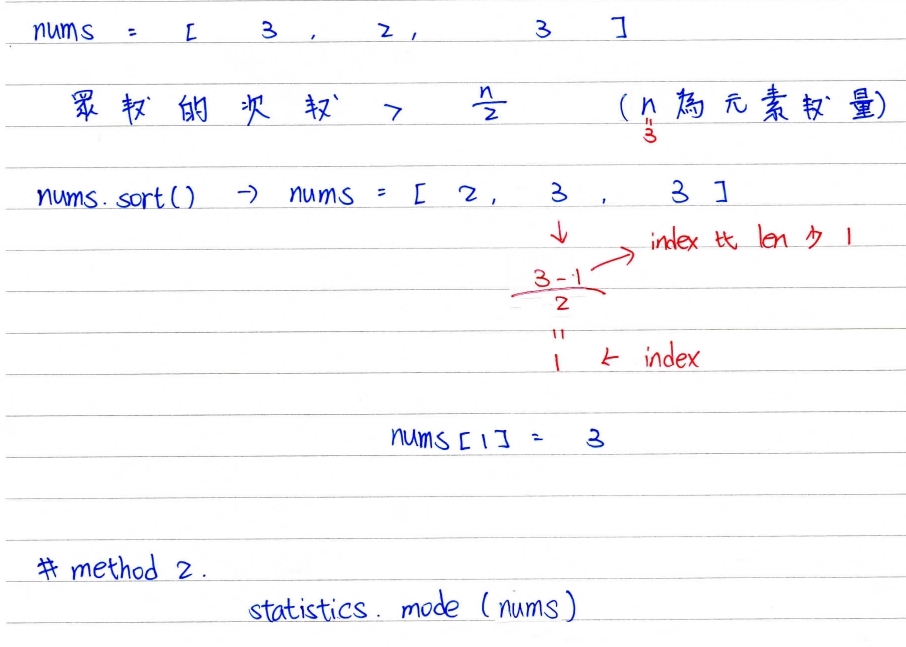 nums = [ 3 , 2 , 3 ]
眾數的次數 > n/2 (n 為元素數量)
=
3
nums.sort() → nums = [ 2, 3 , 3 ]
↓
3-1 → index 比 len 少 1
2
=
1 ← index
nums[1] = 3
# method 2.
statistics. mode (nums)